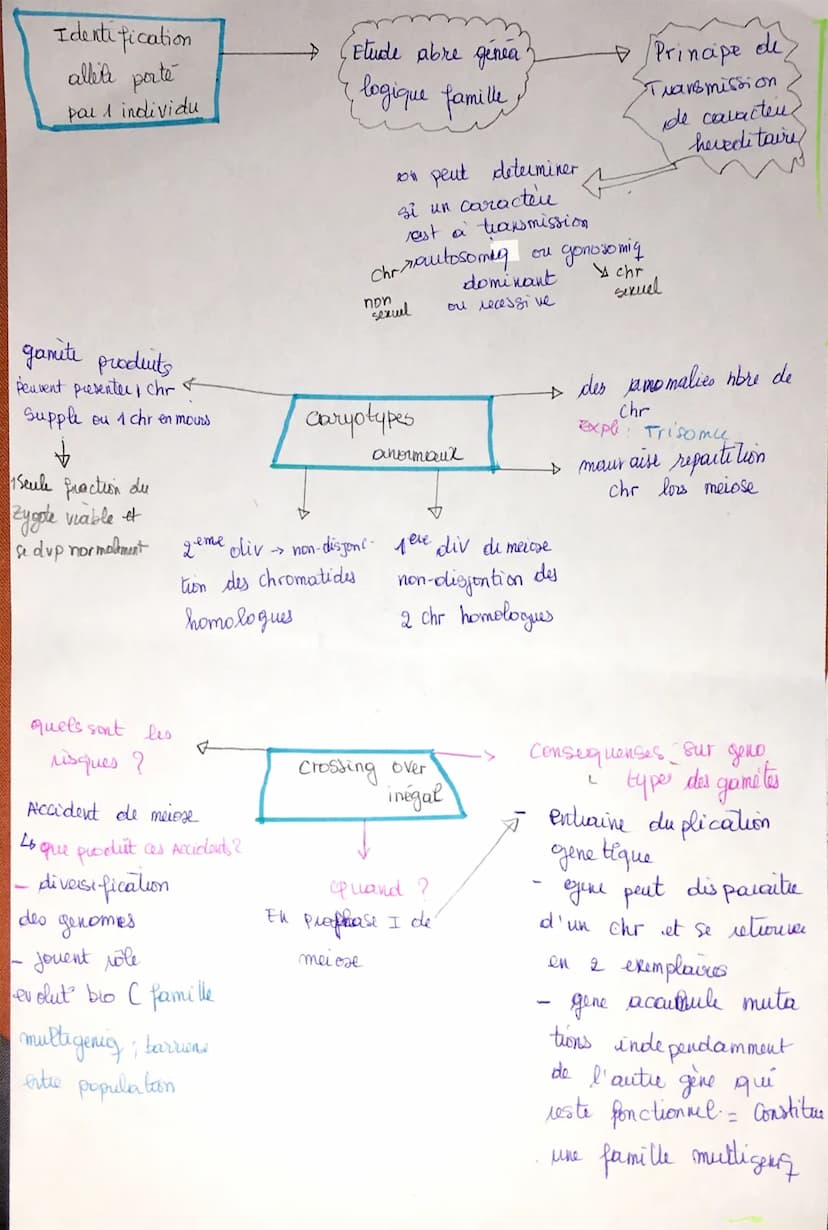 Identification
allèle porté
par 1 individu
Etude abre généa
logique famille
Principe de
Transmission
de caractère
hereditaire
on peut determiner
si un caractère
est à transmission
autosomiq ou gonosomiq
chr
non
sexuel
chr
sexuel
dominant
ou recessive
gamète produits
Peuvent presenter 1 chr
Supple ou 1 chr en moins
1 Seule fraction du
Zygote viable et
se dvp normalement
caryotypes
anormaux
des anomalies nbre de
chr
Expl : Trisomie
mauvaise repartition
chr lors meiose
2eme div → non-disjonc-
tion des chromatides
homologues
1ere div de meiose
non-disjontion des
2 chr homologues
quels sont les
risques ?
Accident de meiose
↳ que produit ces Accidents ?
- diversification
des genomes
- jouent rôle
evolut° bio ( famille
multigeniq ; barriere
entre population
Crossing over
inégal
quand ?
En prophase I de
meiose
Consequenses sur geno
types des gamètes
- entraine duplication
genetique
- gene peut disparaitre
d'un chr et se retrouver
en 2 exemplaires
- gene accumule muta
tions independamment
de l'autre gène qui
reste fonctionnel = Constitue
une famille multigeniq